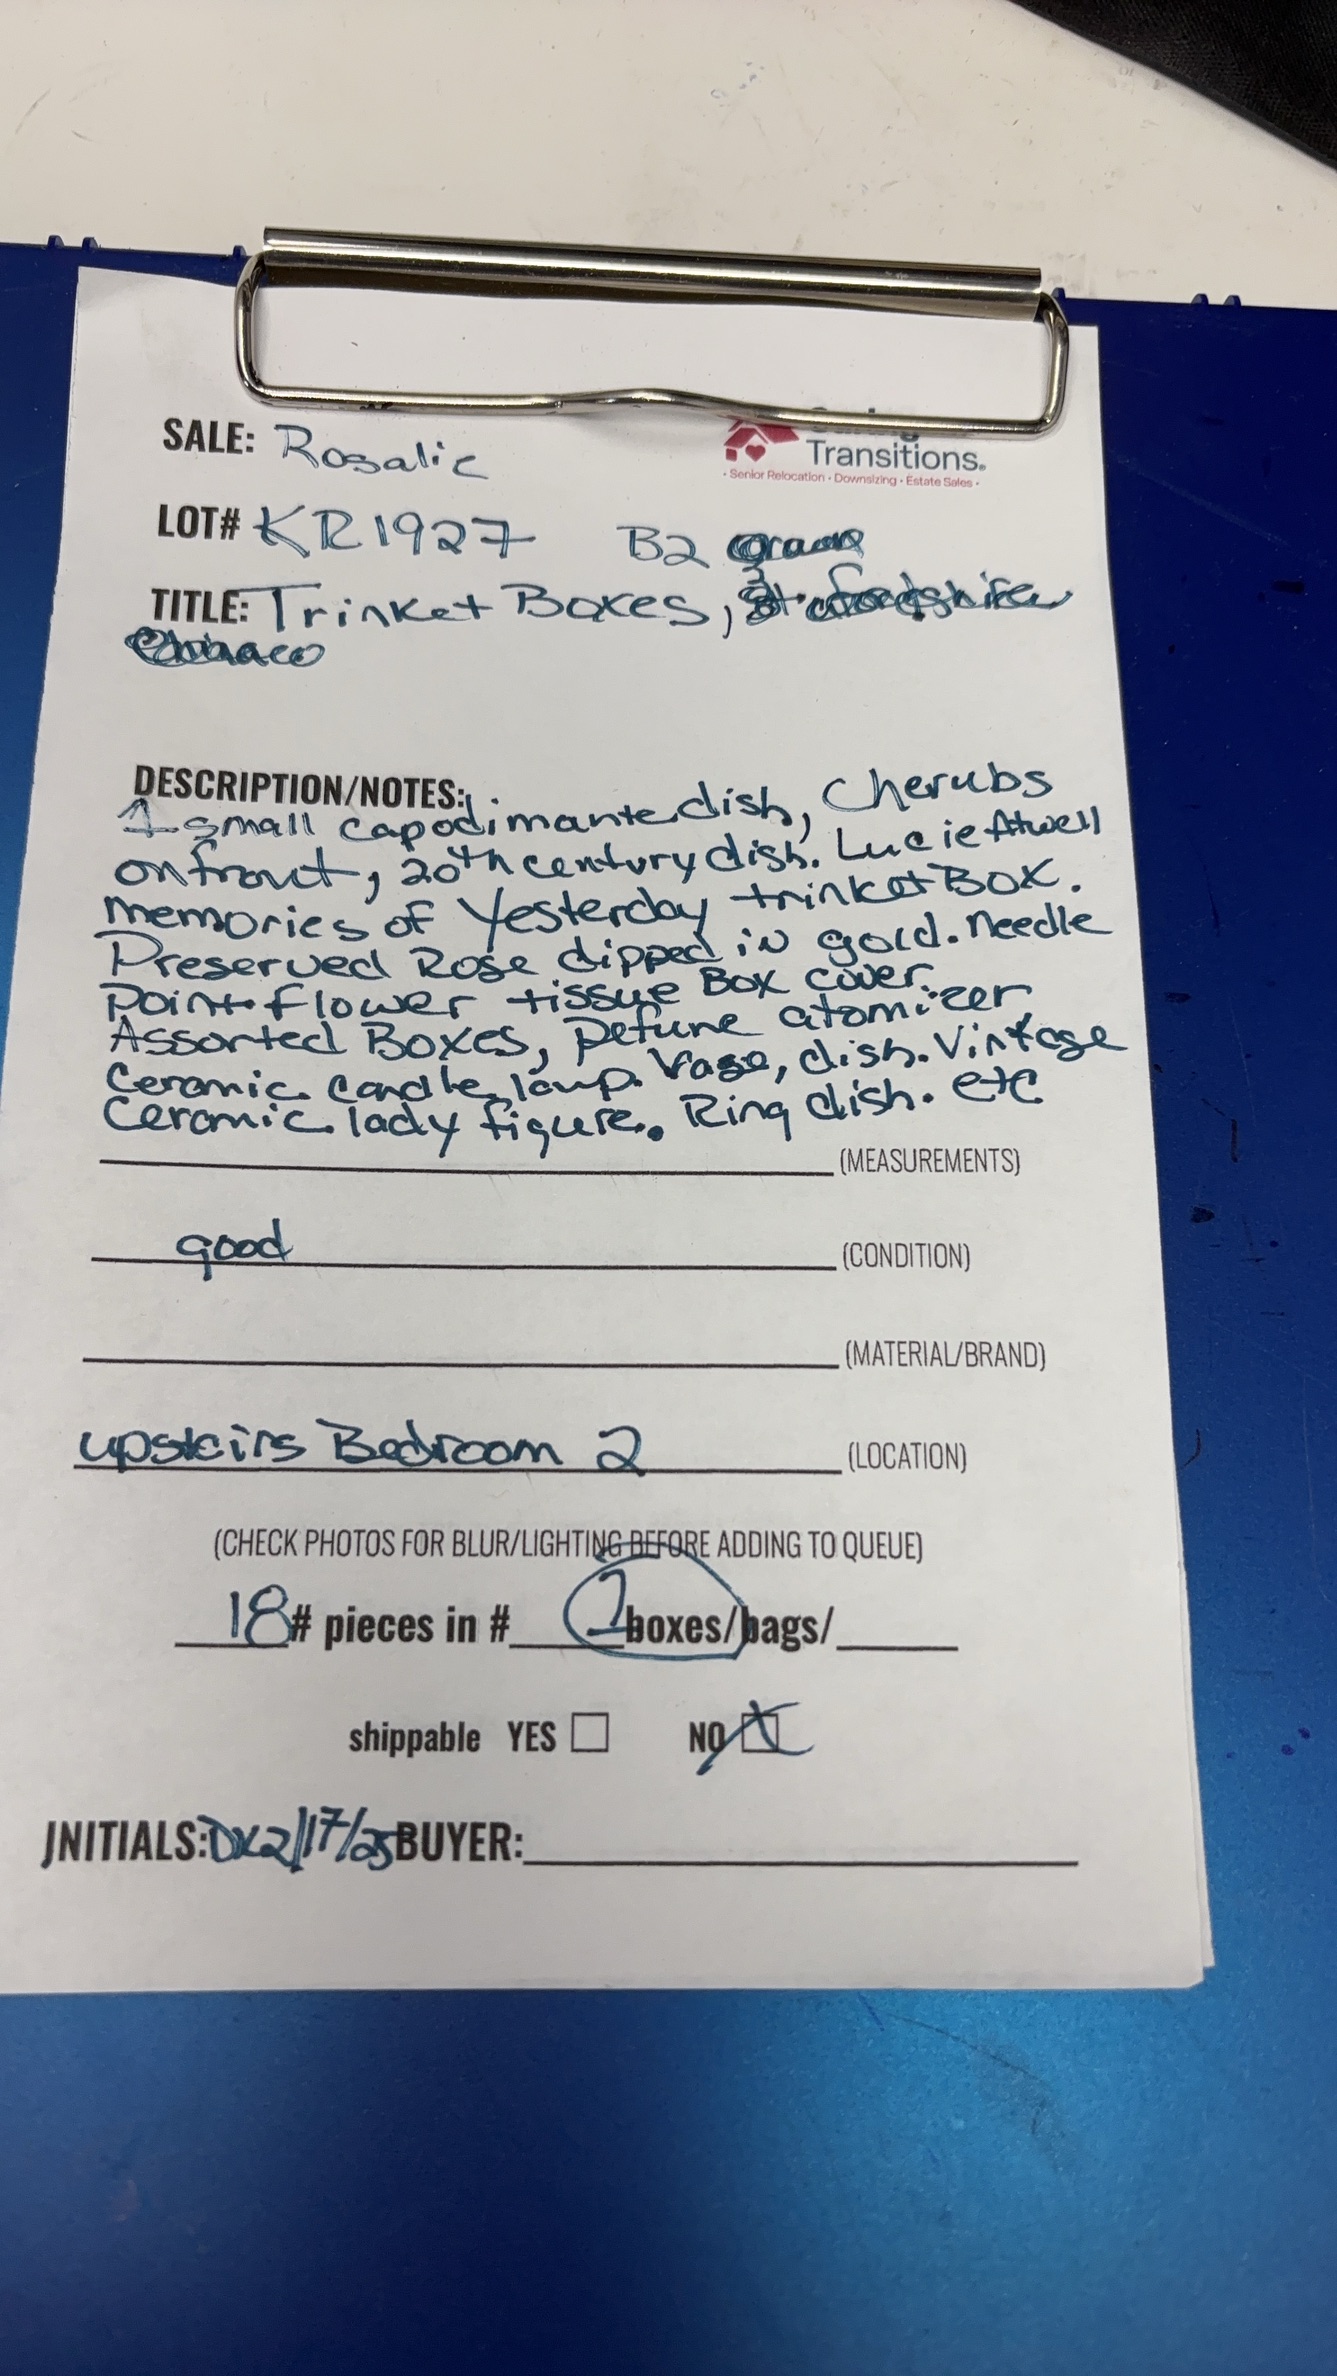 SALE: Rosalie
Transitions.
• Senior Relocation • Downsizing • Estate Sales •
LOT# KR1927 B2
TITLE: Trinket Boxes,
DESCRIPTION/NOTES:
1 small capodimante dish, Cherubs
on front, 20th century dish. Lucie Atwell
memories of Yesterday trinket BOX.
Preserved Rose dipped in gold. Needle
Point flower tissue Box cover.
Assorted Boxes, Pefune atomizer
Ceramic candle lamp. Vase, dish. Vintage
Ceramic lady figure. Ring dish. etc
(MEASUREMENTS)
good (CONDITION)
(MATERIAL/BRAND)
upstairs Bedroom 2 (LOCATION)
(CHECK PHOTOS FOR BLUR/LIGHTING BEFORE ADDING TO QUEUE)
18# pieces in # 1 boxes/bags/
shippable YES NO
INITIALS: DK 2/17/25 BUYER: